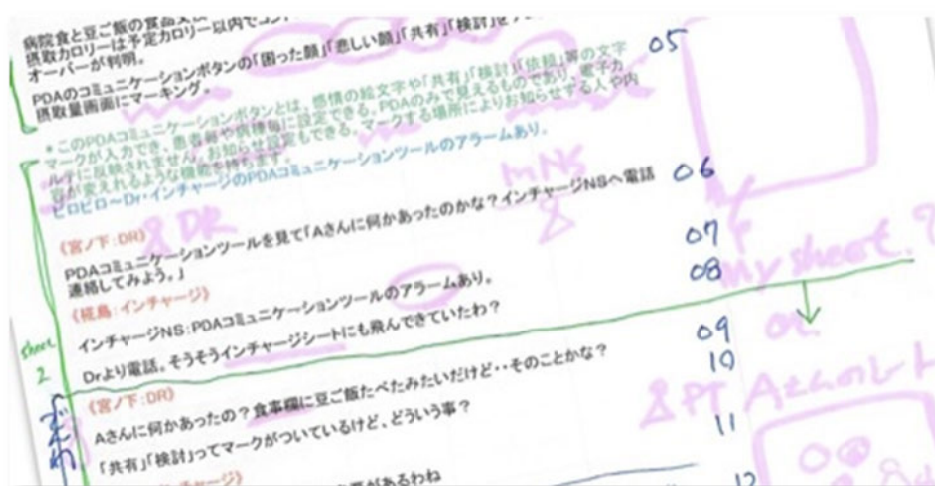 病院食と豆ご飯の食品
摂取カロリーは予定カロリー以内で
オーバーが判明。
PDAのコミュニケーションボタンの「困った顔」「悲しい顔」「共有」「検討」を
摂取量画面にマーキング。
05
*このPDAコミュニケーションボタンとは、感情の絵文字や「共有」「検討」「依頼」等の文字
マークが入力でき、患者毎や病棟毎に設定できる。PDAのみで見えるものであり、電子カ
ルテに反映されません。お知らせ設定もできる。マークする場所によりお知らせする人や内
容が変えれるような機能を持ちます。
ピロピロ~Dr・インチャージのPDAコミュニケーションツールのアラームあり。
mNS
06
《宮ノ下:DR》
DR
PDAコミュニケーションツールを見て「Aさんに何かあったのかな?インチャージNSへ電話
連絡してみよう。」
07
《椛島:インチャージ》
08
My sheet.?
インチャージNS:PDAコミュニケーションツールのアラームあり。
Drより電話。そうそうインチャージシートにも飛んできていたわ?
sheet
2
or
09
《宮ノ下:DR》
10
Aさんに何かあったの?食事欄に豆ご飯たべたみたいだけど・・そのことかな?
PT Aさんのレ
「共有」「検討」ってマークがついているけど、どういう事?
11
チャージ》
があるわね
12